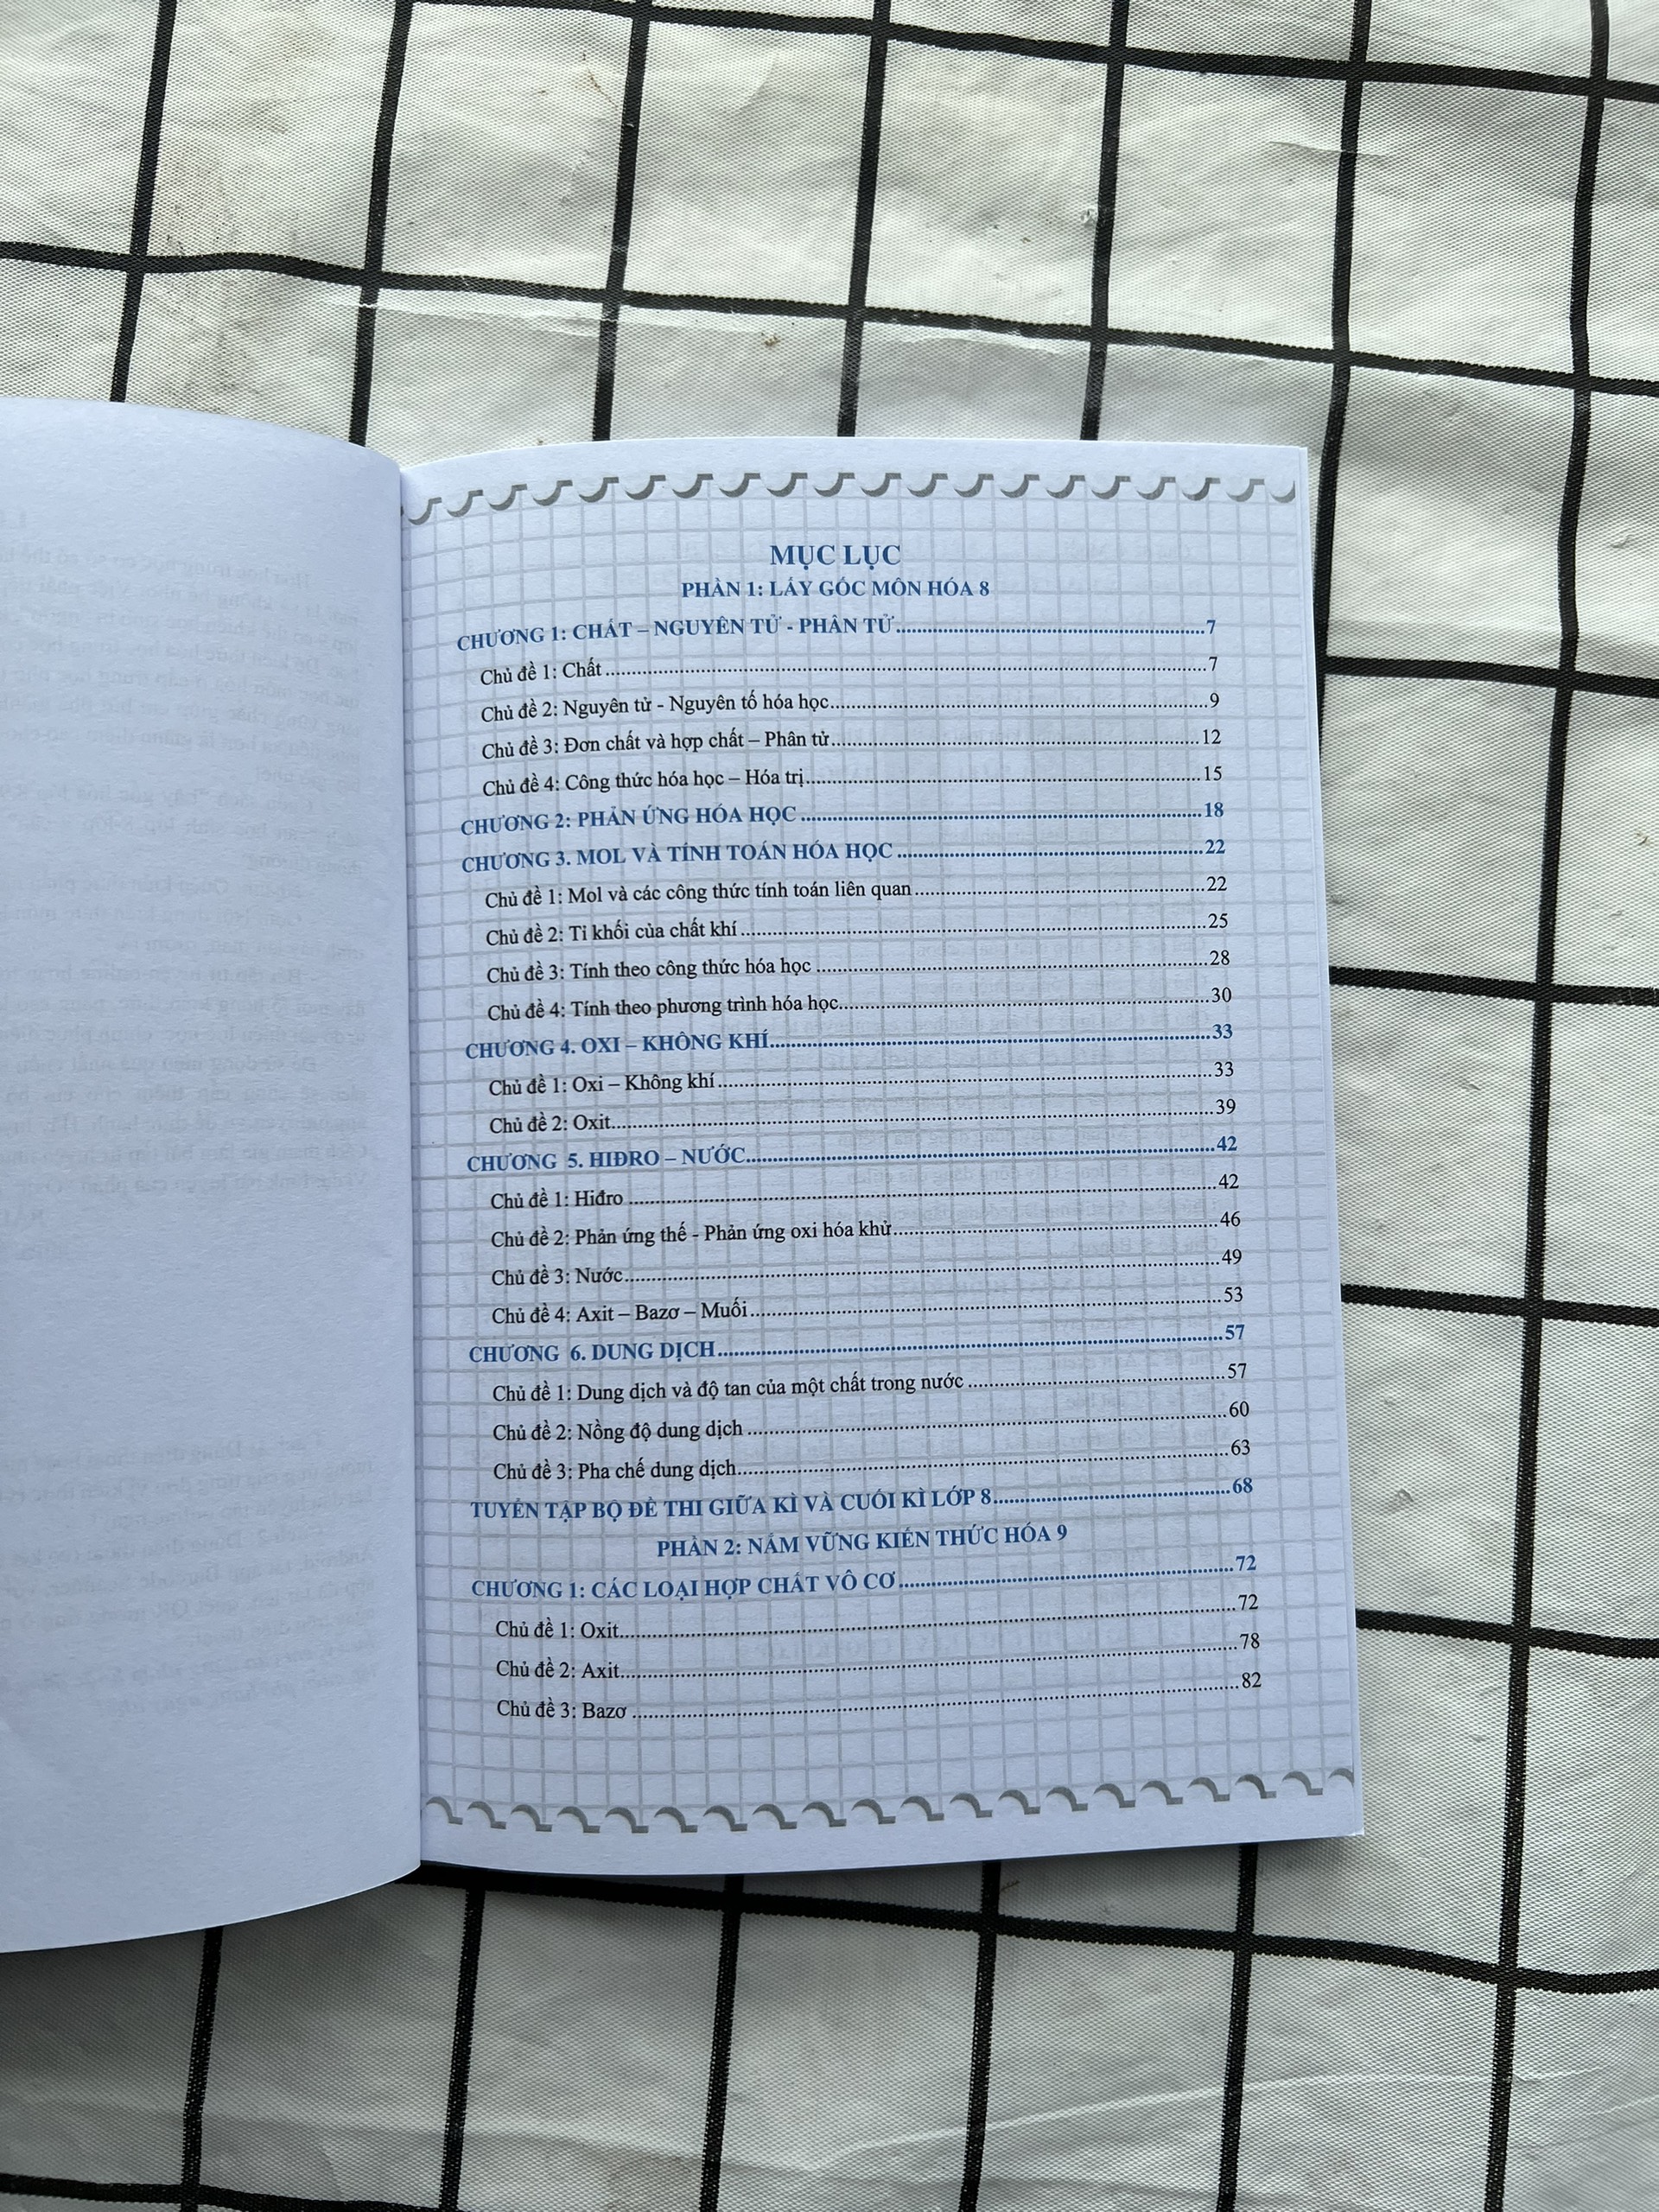 MỤC LỤC
PHẦN 1: LẤY GỐC MÔN HÓA 8
CHƯƠNG 1: CHẤT – NGUYÊN TỬ - PHÂN TỬ.......7
Chủ đề 1: Chất.......7
Chủ đề 2: Nguyên tử - Nguyên tố hóa học.......9
Chủ đề 3: Đơn chất và hợp chất – Phân tử.......12
Chủ đề 4: Công thức hóa học – Hóa trị.......15
CHƯƠNG 2: PHẢN ỨNG HÓA HỌC.......18
CHƯƠNG 3. MOL VÀ TÍNH TOÁN HÓA HỌC.......22
Chủ đề 1: Mol và các công thức tính toán liên quan.......22
Chủ đề 2: Tỉ khối của chất khí.......25
Chủ đề 3: Tính theo công thức hóa học.......28
Chủ đề 4: Tính theo phương trình hóa học.......30
CHƯƠNG 4. OXI – KHÔNG KHÍ.......33
Chủ đề 1: Oxi – Không khí.......33
Chủ đề 2: Oxit.......39
CHƯƠNG 5. HIĐRO – NƯỚC.......42
Chủ đề 1: Hiđro.......42
Chủ đề 2: Phản ứng thế - Phản ứng oxi hóa khử.......46
Chủ đề 3: Nước.......49
Chủ đề 4: Axit – Bazơ – Muối.......53
CHƯƠNG 6. DUNG DỊCH.......57
Chủ đề 1: Dung dịch và độ tan của một chất trong nước.......57
Chủ đề 2: Nồng độ dung dịch.......60
Chủ đề 3: Pha chế dung dịch.......63
TUYỂN TẬP BỘ ĐỀ THI GIỮA KÌ VÀ CUỐI KÌ LỚP 8.......68
PHẦN 2: NẮM VỮNG KIẾN THỨC HÓA 9
CHƯƠNG 1: CÁC LOẠI HỢP CHẤT VÔ CƠ.......72
Chủ đề 1: Oxit.......72
Chủ đề 2: Axit.......78
Chủ đề 3: Bazơ.......82